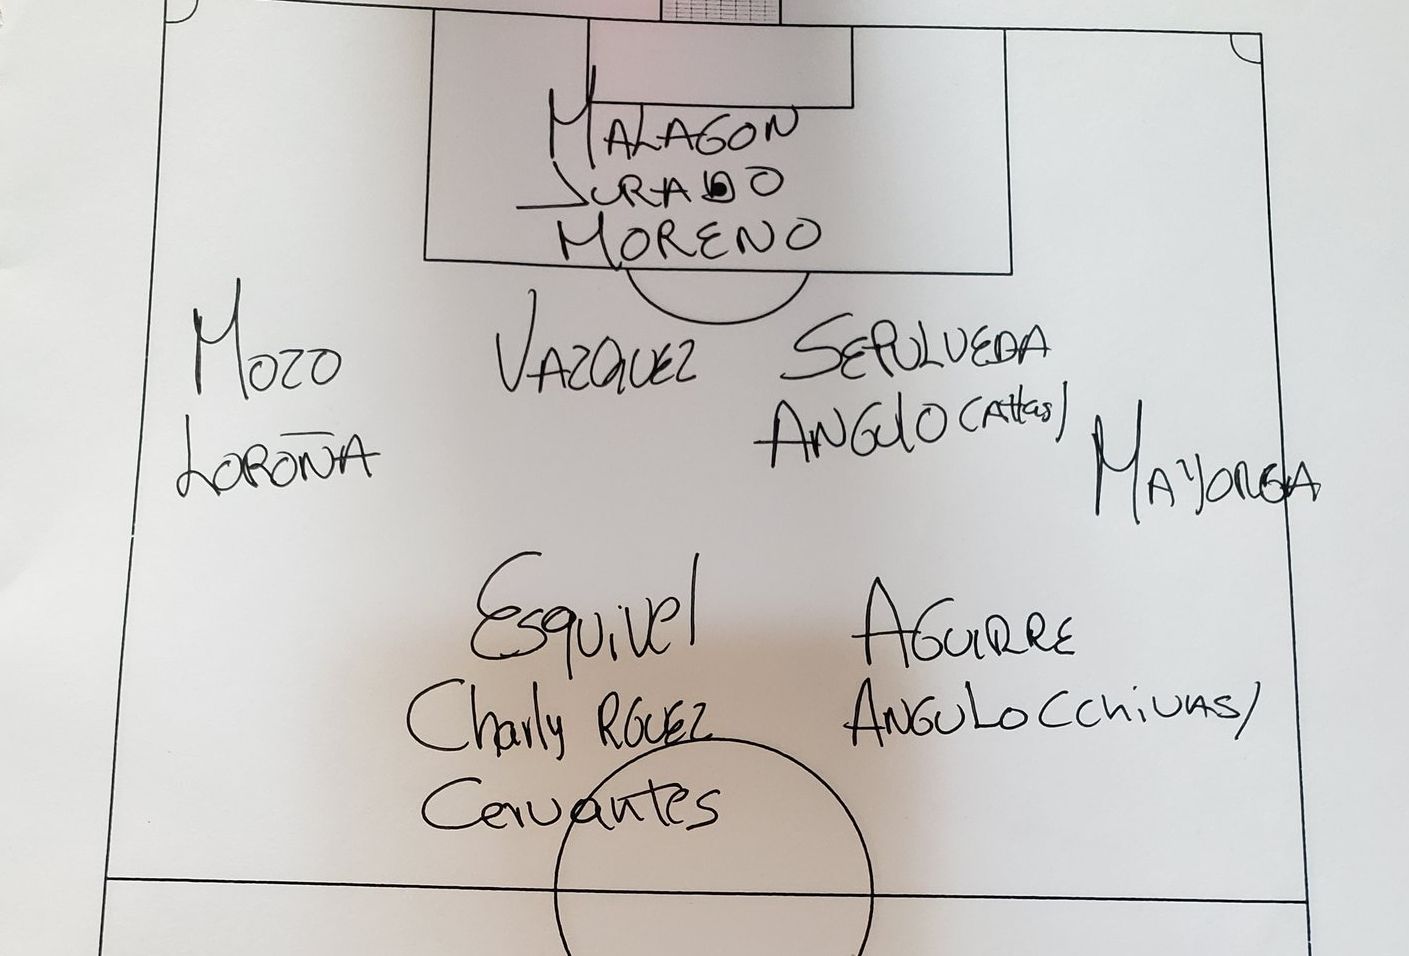 MALAGON
JURADO
MORENO
MOZO
LOROÑA
VAZQUEZ
SEPULVEDA
ANGULO (Atlas)
MAYORGA
Esquivel
Charly RGUEZ
Cervantes
AGUIRRE
ANGULO (CHIVAS)